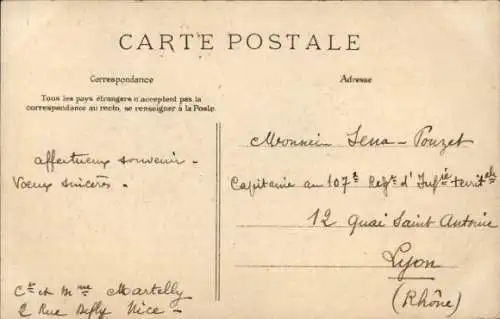 CARTE POSTALE
Correspondance
Tous les pays étrangers n'acceptent pas la
correspondance au recto, se renseigner à la Poste.
affectueux souvenir -
Vœux sincères -
Ct et Mme Martelly
2 Rue Nice -
Adresse
Monsieur Pouzet
Capitaine au 107e Regt d'Infie territle
12 Quai Saint Antoine
Lyon
(Rhône)